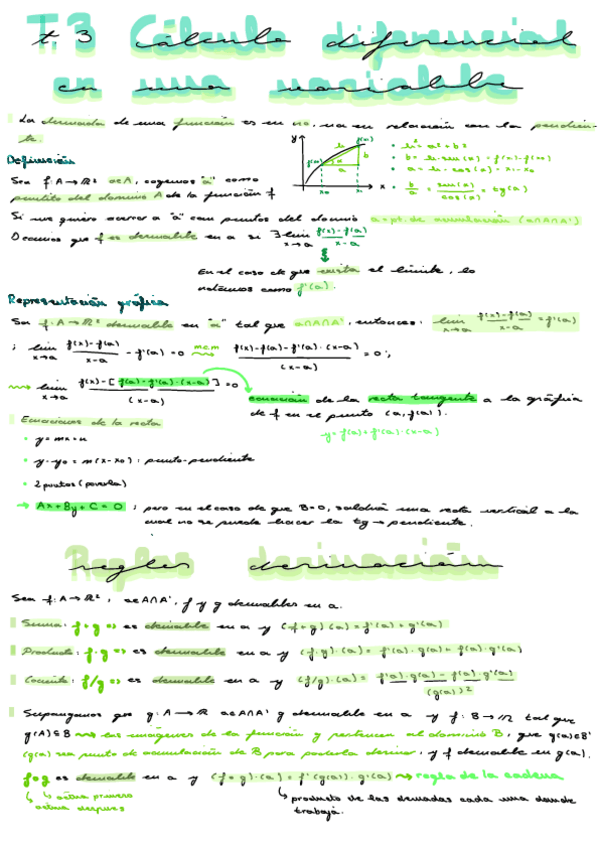 t.3 Cálculo diferencial
en una variable
La derivada de una función es en no, va en relación con la pendien-
te.
Definición
Sea f: A → ℝ² a∈A, cogemos "a" como
puntito del dominio A de la función f
y
f(x)
f(a)
h
b
a
x
h² = a² + b²
b = h · sen(α) = f(x) - f(x₀)
a = h · cos(α) = x - x₀
b/a = sen(α)/cos(α) = tg(α)
Si me quiero acercar a "a" con puntos del dominio a = pt. de acumulación (a∈A∩A')
Decimos que f es derivable en a si ∃ lim x→a (f(x) - f(a))/(x-a)
En el caso de que exista el límite, lo
notamos como f'(a).
Representación gráfica
Sea f: A → ℝ² derivable en "a" tal que a∈A∩A', entonces: lim x→a (f(x) - f(a))/(x-a) = f'(a)
; lim x→a (f(x) - f(a))/(x-a) - f'(a) = 0 mcm (f(x) - f(a) - f'(a) · (x-a))/(x-a) = 0 ;
lim x→a (f(x) - [f(a) + f'(a) · (x-a)])/(x-a) = 0
ecuación de la recta tangente a la gráfica
de f en el punto (a, f(a)).
y = f(a) + f'(a) · (x-a)
Ecuaciones de la recta
y = mx + n
y - y₀ = m(x - x₀) : punto-pendiente
2 puntos
→ Ax + By + C = 0 ; pero en el caso de que B=0, saldría una recta vertical a la
cual no se puede hacer la tg → pendiente.
reglas derivación
Sea f: A → ℝ², a∈A∩A', f y g derivables en a.
Suma: f+g => es derivable en a y (f+g)'(a) = f'(a) + g'(a)
Producto: f·g => es derivable en a y (f·g)'(a) = f'(a) · g(a) + f(a) · g'(a)
Cociente: f/g => es derivable en a y (f/g)'(a) = (f'(a) · g(a) - f(a) · g'(a))/(g(a))²
Supongamos que g: A → ℝ a∈A∩A' g derivable en a y f: B → ℝ tal que
g(A) ⊆ B las imágenes de la función g pertenecen al dominio B, que g(a)∈B'
(g(a) sea punto de acumulación de B para poderla derivar, y f derivable en g(a).
f∘g es derivable en a y (f∘g)'(a) = f'(g(a)) · g'(a) regla de la cadena
actúa primero
actúa después
producto de las derivadas cada una donde
trabaja.